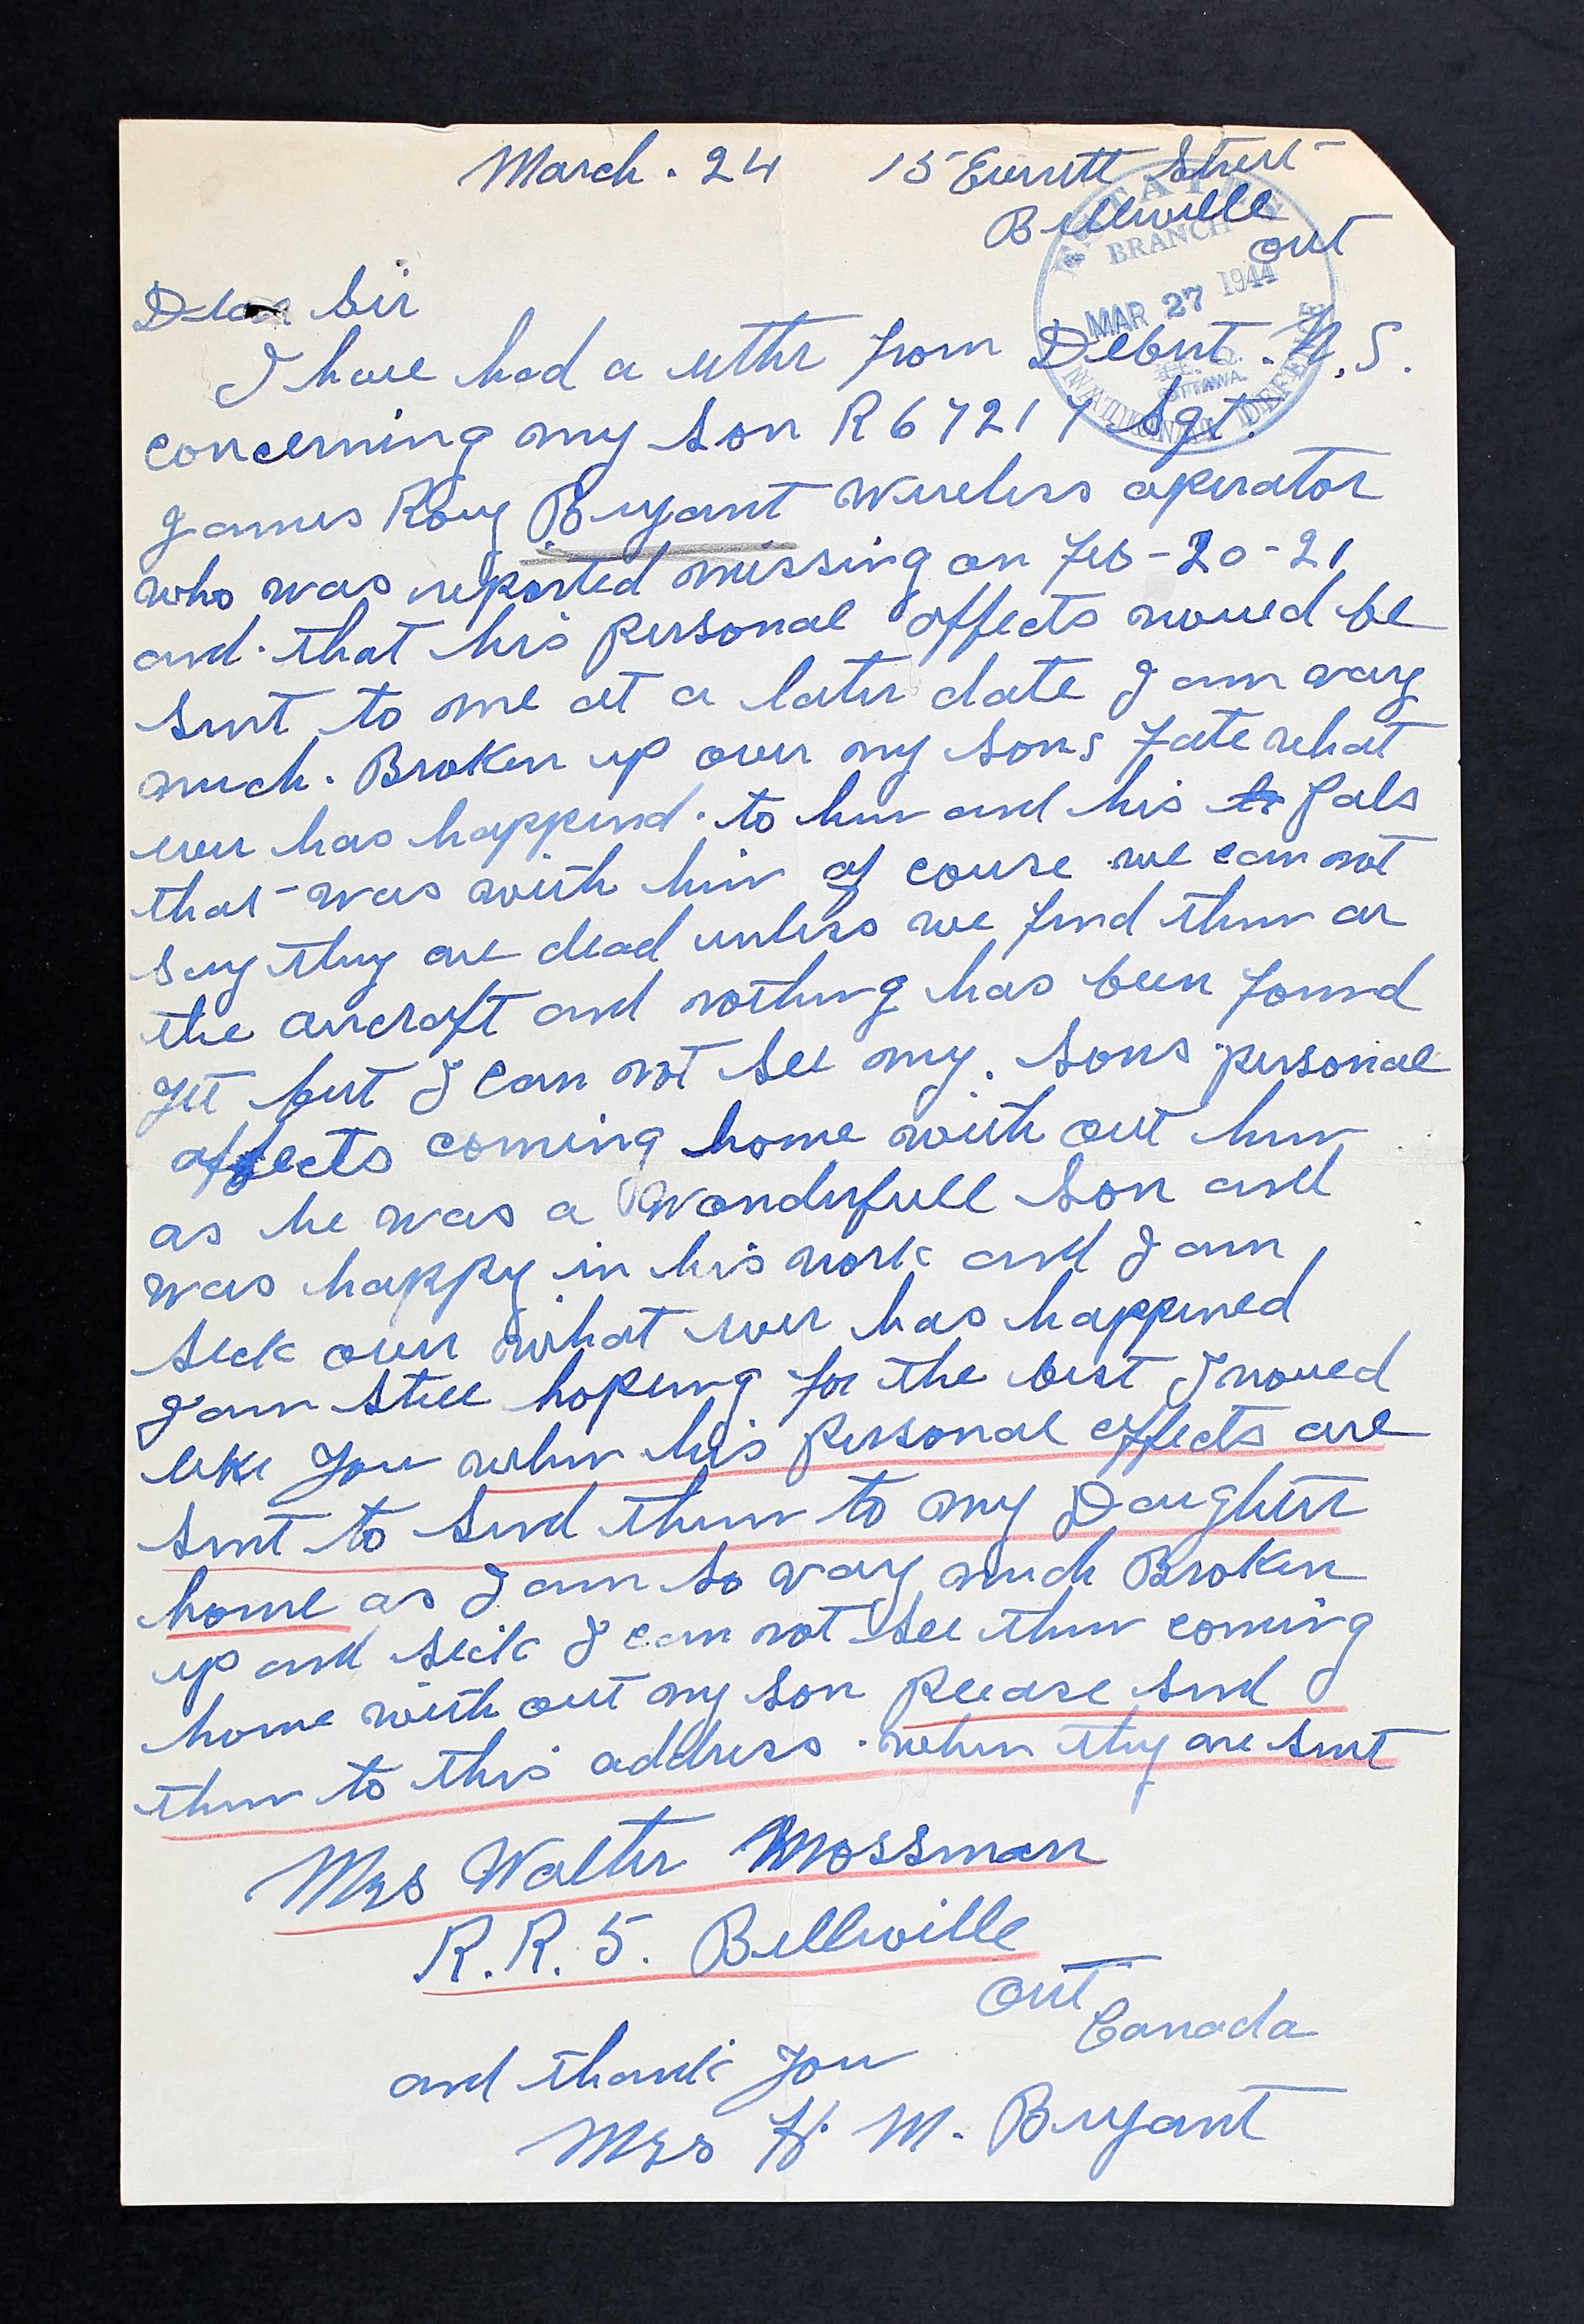 March. 24 15 Everett Street
Belleville
Ont
ESTATES
BRANCH
MAR 27 1944
OTTAWA.
NATIONAL DEFENCE
Dear Sir
I have had a letter from Debert. N.S.
concerning my son R67217 Sgt.
James Roy Bryant wireless operator
who was reported missing on Feb-20-21
and that his personal effects would be
sent to me at a later date I am vary
much. Broken up over my sons Fate what
ever has happend. to him and his Pals
that was with him of couse we can not
say they are dead unless we find them or
the aircraft and nothing has been found
yet but I can not see my. sons personal
affects coming home with out him
as he was a Wonderfull Son and
was happy in his work and I am
sick over what ever has happened
I am still hopeing for the best I would
like you when his personal effects are
sent to send them to my Daughter
home as I am so vary much Broken
up and sick I can not see them coming
home with out my son please send
them to this address. when they are sent
Mrs Walter Mossman
R.R. 5. Belleville
Ont
Canada
and thank you
Mrs H. M. Bryant